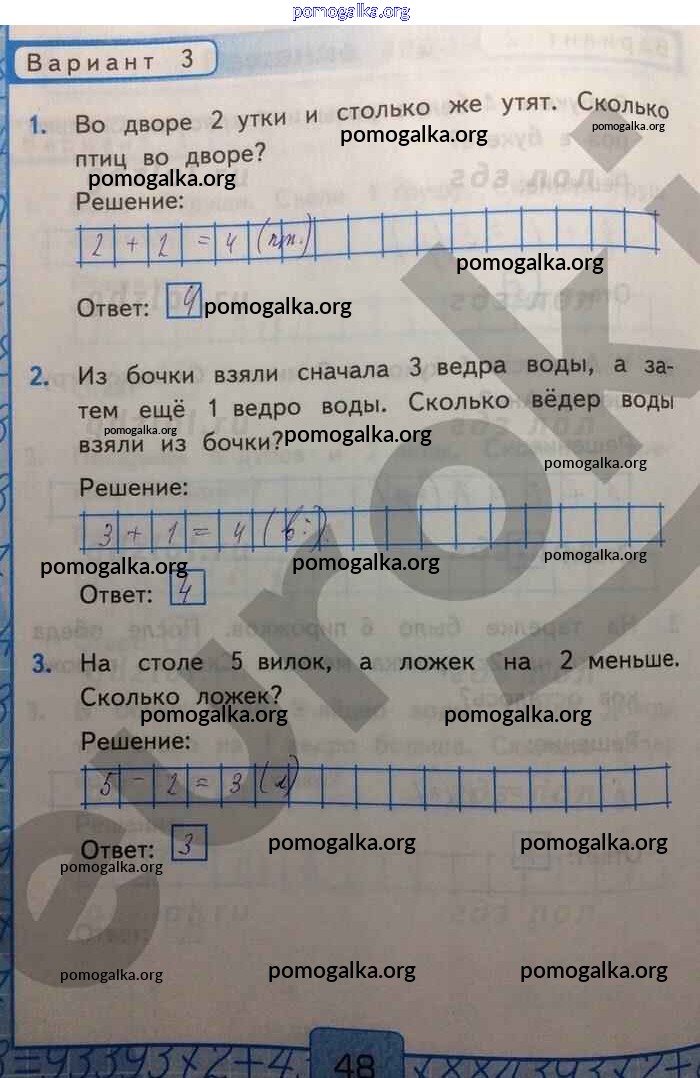 pomogalka.org
Вариант 3
1. Во дворе 2 утки и столько же утят. Сколько
pomogalka.org pomogalka.org
птиц во дворе?
pomogalka.org
Решение:
2 + 2 = 4 (пт.)
pomogalka.org
Ответ: 4 pomogalka.org
2. Из бочки взяли сначала 3 ведра воды, а за-
тем ещё 1 ведро воды. Сколько вёдер воды
pomogalka.org
взяли из бочки? pomogalka.org
pomogalka.org
Решение:
3 + 1 = 4 (в.)
pomogalka.org pomogalka.org pomogalka.org
Ответ: 4
3. На столе 5 вилок, а ложек на 2 меньше.
Сколько ложек?
pomogalka.org pomogalka.org
Решение:
5 - 2 = 3 (л)
Ответ: 3 pomogalka.org pomogalka.org
pomogalka.org
pomogalka.org pomogalka.org pomogalka.org
48
euroki